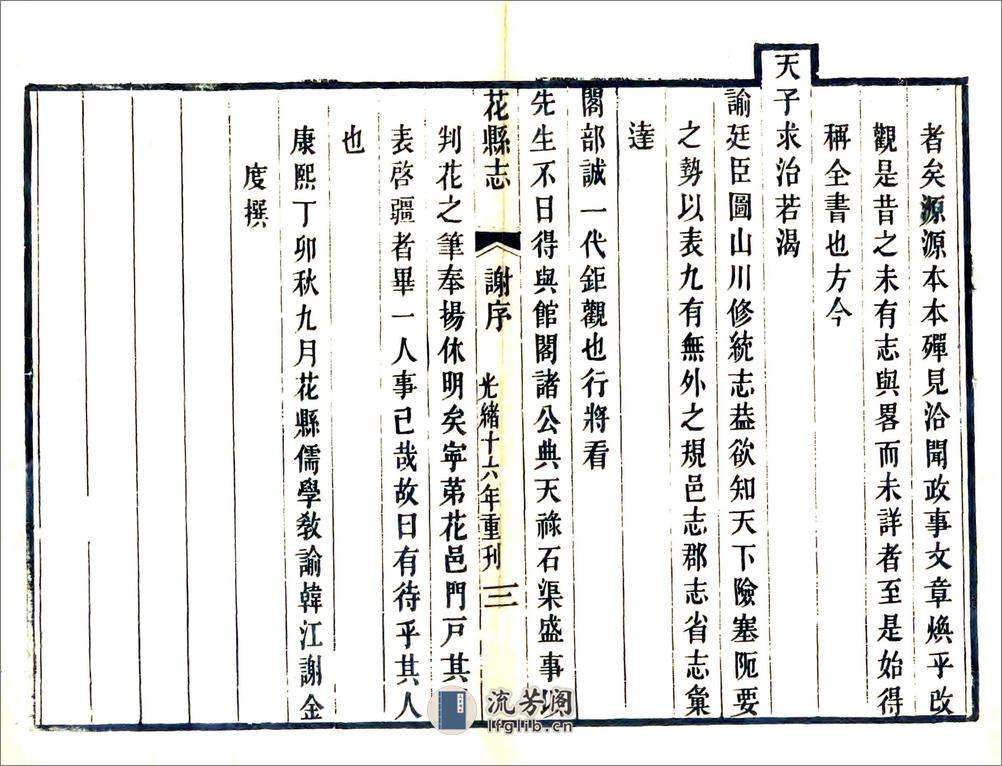 者矣源源本本殫見洽聞政事文章煥乎改
觀是昔之未有志與畧而未詳者至是始得
稱全書也方今
天子求治若渴
諭廷臣圖山川修統志益欲知天下險塞阨要
之勢以表九有無外之規邑志郡志省志彙
達
閣部誠一代鉅觀也行將看
先生不日得與館閣諸公典天祿石渠盛事
花縣志 謝序 光緒十六年重刊 三
判花之筆奉揚休明矣寧第花邑門戸其
表啓疆者畢一人事己哉故曰有待乎其人
也
康熙丁卯秋九月花縣儒學敎諭韓江謝金
度撰
流芳閣
lfglib.cn